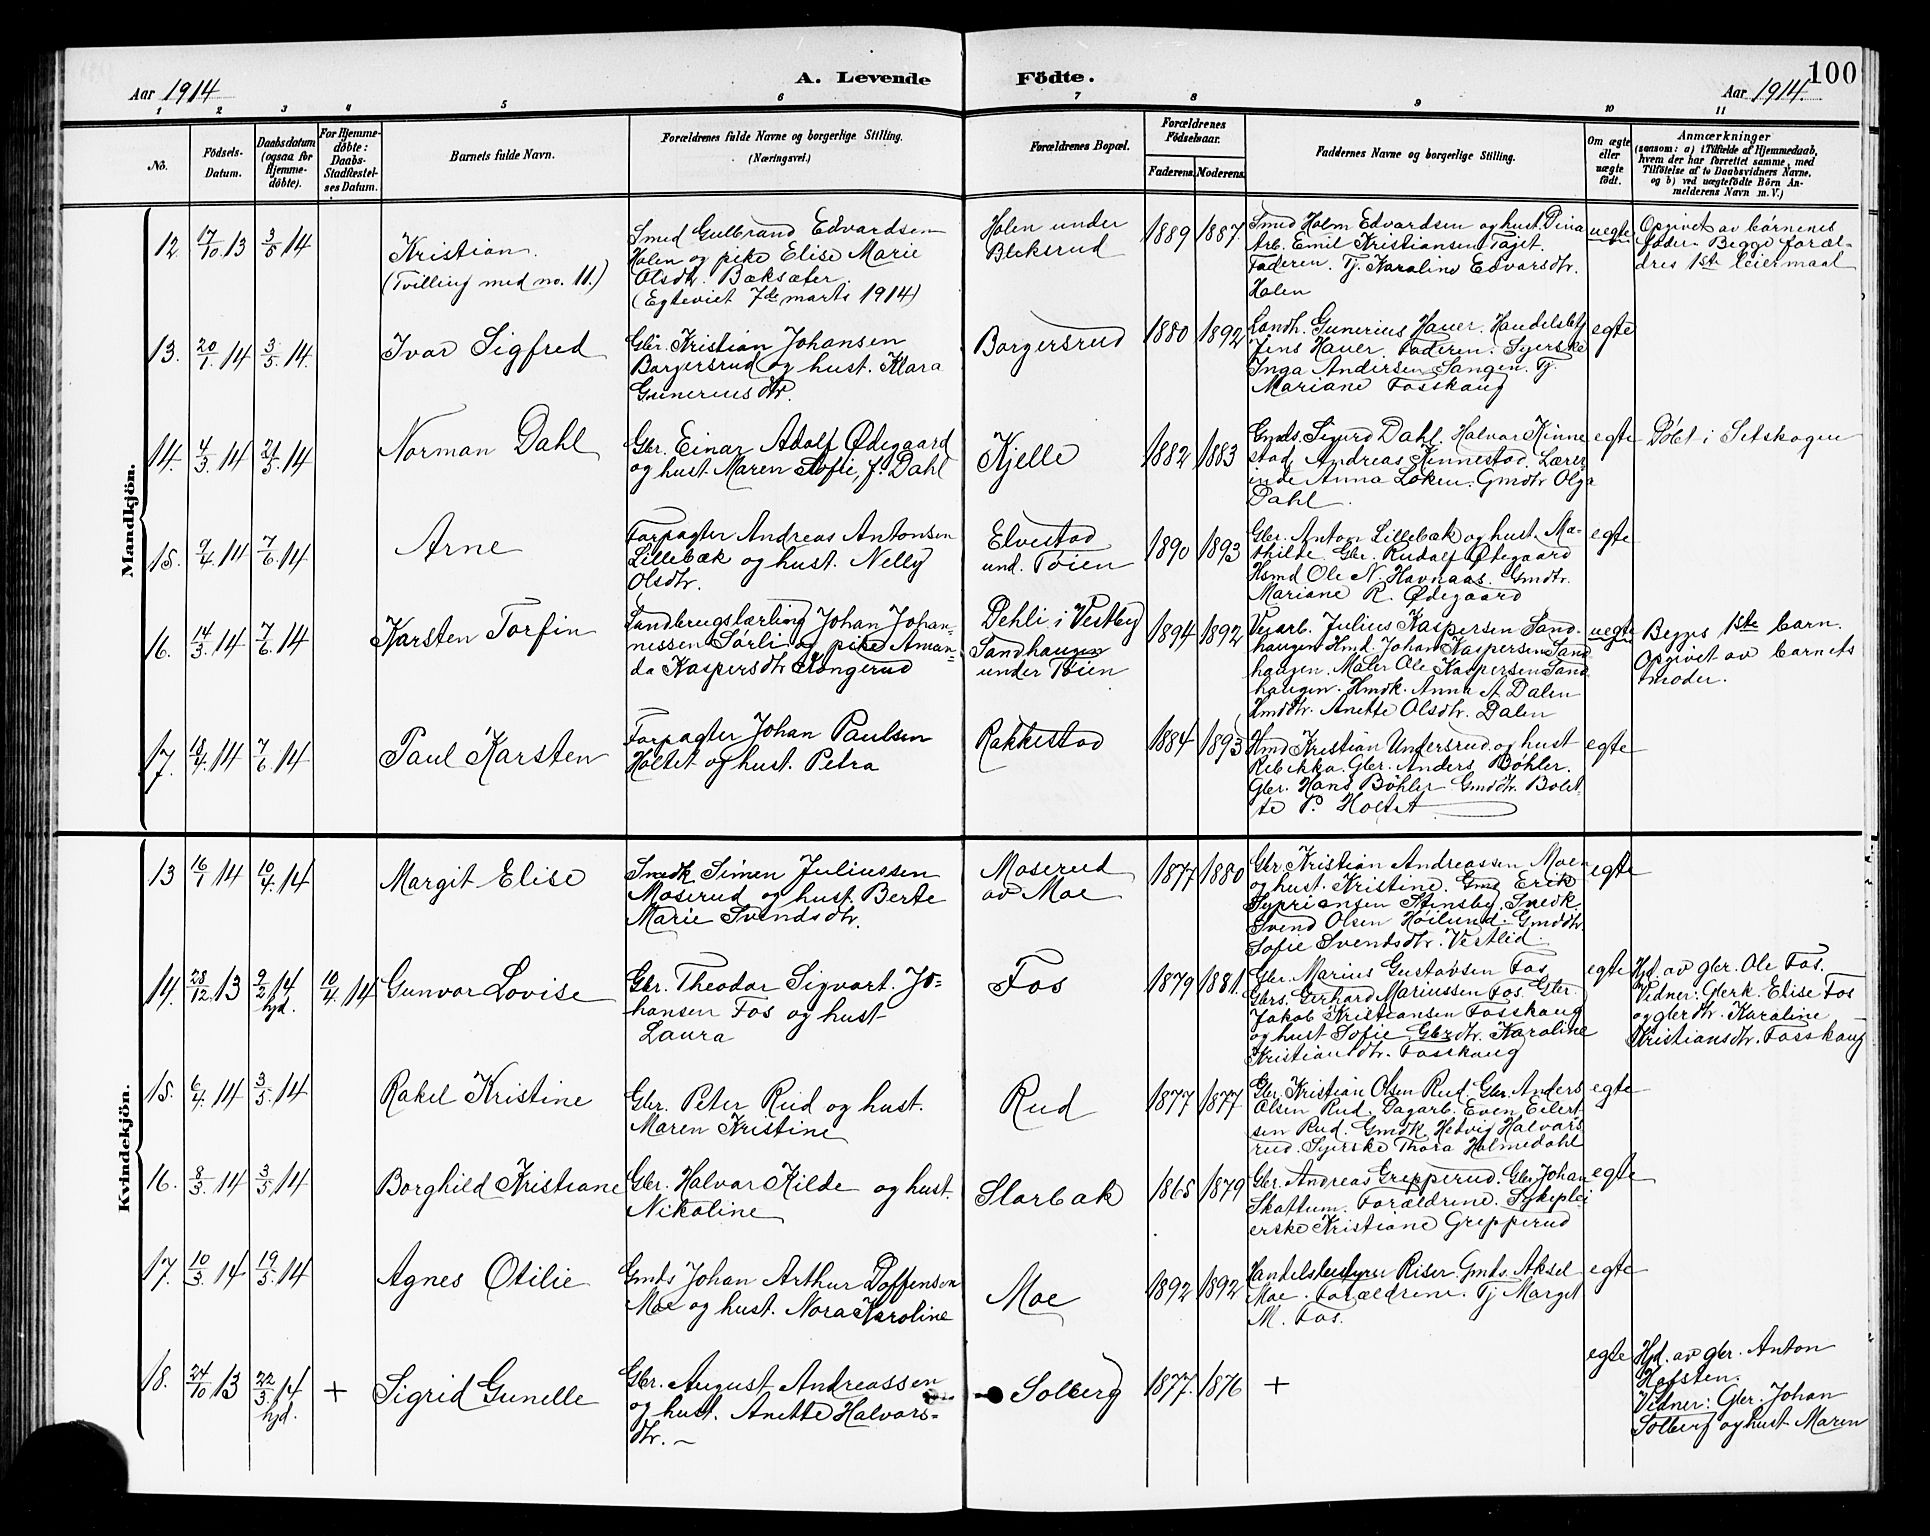 A. Levende Födte.
100
Aar 1914
Aar 1914.
1 2 3 4 5 6 7 8 9 10 11
No.
Födsels-Datum.
Daabsdatum (ogsaa for Hjemme-döbte).
For Hjemme-döbte: Daabs-Stadfæstel-ses Datum.
Barnets fulde Navn.
Forældrenes fulde Navne og borgerlige Stilling. (Næringsvei.)
Forældrenes Bopæl.
Forældrenes Födselsaar.
Faderens. Moderens.
Faddernes Navne og borgerlige Stilling.
Om ægte eller uægte födt.
Anmærkninger
(saasom: a) i Tilfælde af Hjemmedaab,
hvem der har forrettet samme, med
Tilföielse af to Daabsvidners Navne,
og b) ved uægtefödte Börn An-
melderens Navn m. V.)
Mandkjön.
12. 17/10 13 3/5 14
Kristian.
(Tvilling med no. 11.)
Smed Gulbrand Edvardsen
Holen og pike Elise Marie
Olsdtr. Bæksæter
(Egteviet 7de marts 1914)
Holen under
Bleksrud
1889 1887.
Smed Holm Edvardsen og hust. Dina
Arb. Emil Kristiansen Tajet.
Faderen. Tj. Karoline Edvarsdtr.
Holen
uegte
Opgivet av börnenes
fader. Begge foræl-
dres 1ste leiermaal
13. 20/1 14 3/5 14.
Ivar Sigfred
Gbr. Kristian Johansen
Borgersrud og hust. Klara
Gunerius dtr.
Borgersrud
1880 1892
Landh. Gunerius Hauer. Handelsbetj.
Jens Hauer. Faderen. Syerske
Inga Andersen Sangen. Tj.
Mariane Fosskaug
egte
14. 4/3 14 21/5 14
Norman Dahl
Gbr. Einar Adolf Ødegaard
og hust. Maren Sofie, f. Dahl
Kjelle
1882 1883
Gmds. Sigurd Dahl. Halvor Kinne
stad Andreas Kinnestad. Lærer
inde Anna Løken. Gmdtr Olga
Dahl
egte
Döbt i Setskogen
15. 9/4 14 7/6 14.
Arne
Forpagter Andreas Antonsen
Lillebæk og hust. Nelly
Olsdtr.
Elvestad
und. Töien
1890 1893
Gbr. Anton Lillebæk og hust. Ma-
thilde Gbr. Rudolf Ødegaard
Hsmd Ole N. Havnaas. Gmdtr.
Mariane R. Ødegaard
egte
16. 14/3 14 7/6 14
Karsten Torfin
Landbrugslærling Johan Johan-
nessen Sørli og pike Aman-
da Kaspersdtr Kongerud
Dehli i Vestby
Sandhaugen
under Töien
1894 1892
Vejarb. Julius Kaspersen Sand-
haugen Hmd. Johan Kaspersen Sand
haugen. Maler Ole Kaspersen Sand
haugen. Hmdk. Anna A Dalen
Hmdtr. Anette Olsdtr. Dalen
uegte
Begges 1ste barn.
Opgivet av barnets
moder.
17. 18/4 14 7/6 14
Paul Karsten
Forpagter Johan Paulsen
Holtet og hust. Petra
Rakkestad
1884 1893
Hmd Kristian Undersrud og hust
Rebekka. Gbr. Anders Böhler.
Gbr. Hans Böhler Gmddtr. Bolet-
te P. Holtet
egte
Kvindekjön.
13 16/1 14 10/4 14
Margit Elise
Smedk Simen Juliussen
Moserud og hust. Berte
Marie Svendsdtr.
Moserud
av Moe
1877 1880
Gbr. Kristian Andreassen Moen
og hust. Kristine. Gmd Erik
Syprionsen Stensby. Snedk.
Svend Olsen Höilund. Gmddtr.
Sofie Svendsdtr. Vestlid.
egte
14. 28/12 13 9/2 14 hjd. 10/4 14
Gunvor Lovise
Gbr. Theodor Sigvart. Jo-
hansen Fos og hust
Laura
Fos
1879 1881.
Gbr. Marius Gustavsen Fos
Gbrs. Gerhard Mariussen Fos. Gbr.
Jakob Kristiansen Fosskaug
og hust Sofie. Gbrdtr. Karoline
Kristiansdtr. Fosskaug
egte
Hjd. av gbr. Ole Fos.
Vidner: Gbrk. Elise Fos
og gbrdtr. Karoline
Kristiansdtr. Fosskaug
15. 6/4 14 3/5 14
Rakel Kristine
Gbr. Peter Rud og hust.
Maren Kristine
Rud
1877 1877
Gbr. Kristian Olsen Rud. Gbr. Anders
Olsen Rud. Dagarb. Even Eilert
sen Rud. Gmdk Hedvig Halvars
rud. Syerske Thora Holmedahl
egte
16. 8/3 14 3/5 14
Borghild Kristiane
Gbr. Halvor Kilde og hust.
Nikoline
Slorbak
1865 1879
Gbr. Andreas Grepperud. Gbr. Johan
Skattum. Forældrene. Sykeplei
erske Kristiane Grepperud
egte
17. 10/3 14 19/5 14
Agnes Otilie
Gmds Johan Arthur Doffensen
Moe og hust. Nora Karoline
Moe
1892 1892
Handelsbestyrer Riser. Gmds. Aksel
Moe. Forældrene. Tj Marget
M. Fos.
egte
18. 24/10 13 22/3 14 hjd. +
Sigrid Gunelle
Gbr. August Andreassen
og hust. Anette Halvors-
dtr.
Solberg
1877. 1876
+
egte
Hjd. av gbr. Anton
Hofsten.
Vidner: Gbr. Johan
Solberg og hust Maren